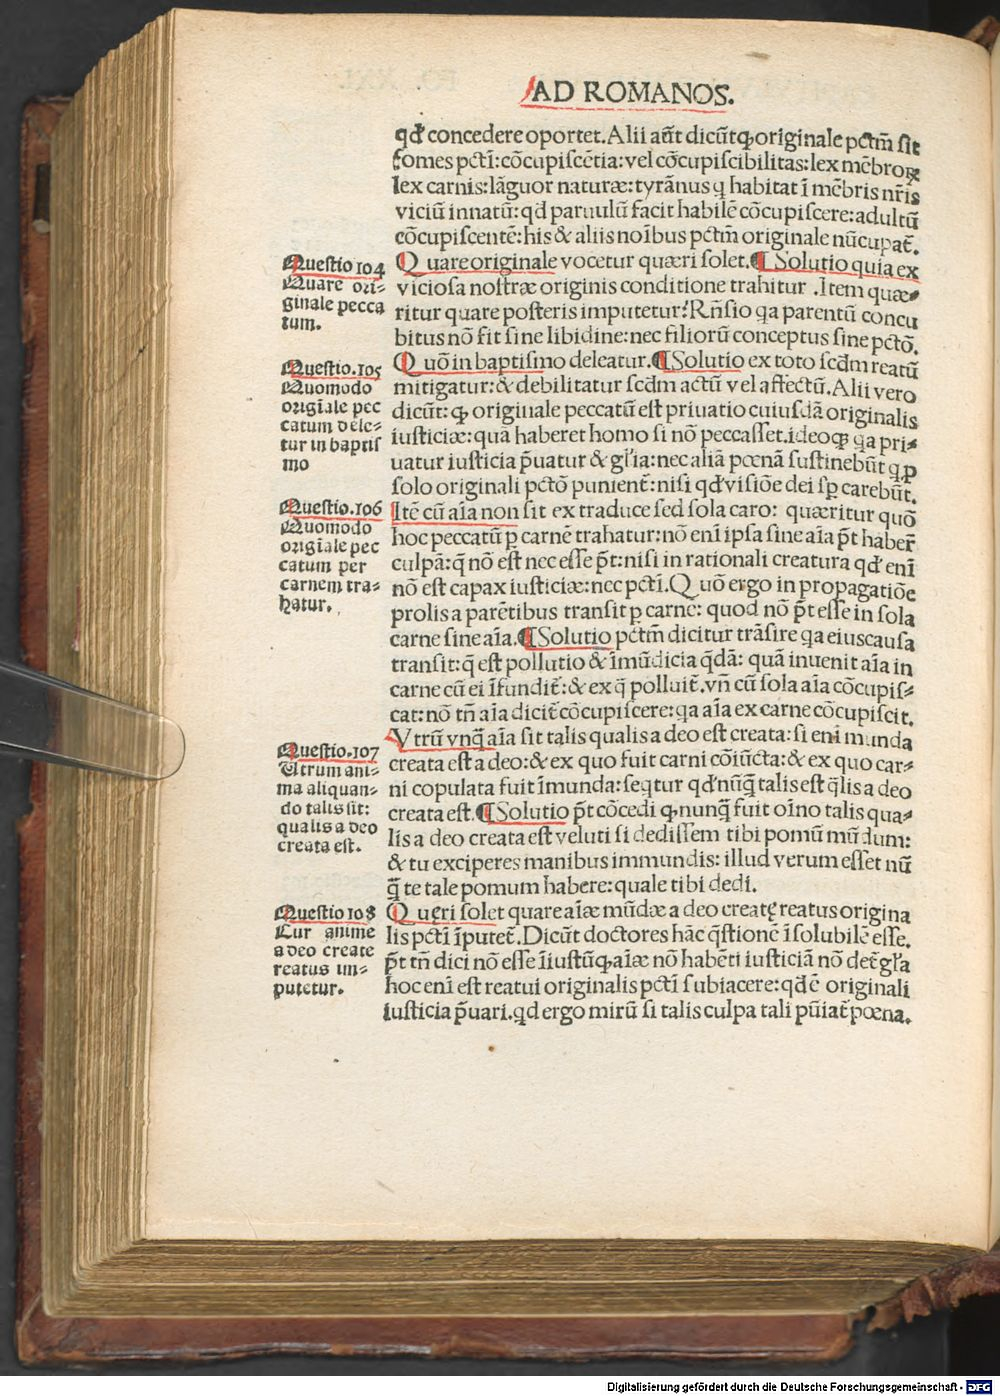 AD ROMANOS.
qd̕ concedere oportet. Alii aūt dicūt ꝙ originale pctm̄ sit
fomes pctī: cōcupiscētia: vel cōcupiscibilitas: lex mēbroꝝ
lex carnis: lāguor naturæ: tyrānus q habitat ī mēbris nr̄is
viciū innatū: qd̕ paruulū facit habilē cōcupiscere: adultū
cōcupiscentē: his & aliis noībus pctm̄ originale nūcupat̄.
Questio 104
Quare ori-
ginale pecca
tum.
Quare originale vocetur quæri solet. ¶ Solutio quia ex
viciosa nostræ originis conditione trahitur. Item quæ-
ritur quare posteris imputetur? Rn̄sio qa parentū concu
bitus nō fit sine libidine: nec filiorū conceptus sine pctō.
Questio. 105
Quomodo
origīale pec
catum dele-
tur in baptis
mo
Quō in baptismo deleatur. ¶ Solutio ex toto scd̄m reatū
mitigatur: & debilitatur scd̄m actū vel affectū. Alii vero
dicūt: ꝙ originale peccatū est priuatio cuiusdā originalis
iusticiæ: quā haberet homo si nō peccasset. ideoqꝫ qa pri-
uatur iusticia p̄uatur & gl̕ia: nec aliā pœnā sustinebūt q ꝑ
solo originali pctō punient̄: nisi qd̕ visiōe dei sꝑ carebūt.
Questio. 106
Quomodo
origīale pec
catum per
carnem tra-
hatur.
Itē cū aīa non sit ex traduce sed sola caro: quæritur quō
hoc peccatū ꝑ carnē trahatur: nō enī ipsa sine aīa p̄t haber̄
culpā: q̄ nō est nec esse p̄t: nisi in rationali creatura qd̕ enī
nō est capax iusticiæ: nec pctī. Quō ergo in propagatiōe
prolis a parētibus transit ꝑ carne: quod nō p̄t esse in sola
carne sine aīa. ¶ Solutio pctm̄ dicitur trāsire qa eius causa
transit: q̄ est pollutio & īmūdicia q̄dā: quā inuenit aīa in
carne cū ei īfundit̄: & ex q̄ polluit̄. vn̄ cū sola aīa cōcupis-
cat: nō tn̄ aīa dicit̄ cōcupiscere: qa aīa ex carne cōcupiscit.
Questio. 107
Utrum ani-
ma aliquan-
do talis sit:
qualis a deo
creata est.
Vtrū vnq̄ aīa sit talis qualis a deo est creata: si enī munda
creata est a deo: & ex quo fuit carni cōiūcta: & ex quo car-
ni copulata fuit īmunda: seqtur qd̕ nūq̄ talis est q̄lis a deo
creata est. ¶ Solutio p̄t cōcedi ꝙ nunq̄ fuit oīno talis qua-
lis a deo creata est veluti si dedissem tibi pomū mūdum:
& tu exciperes manibus immundis: illud verum esset nū
q̄ te tale pomum habere: quale tibi dedi.
Questio 108
Cur anime
a deo create
reatus im-
putetur.
Queri solet quare aīæ mūdæ a deo creatę reatus origina
lis pctī īputet̄. Dicūt doctores hāc q̄stionē īsolubilē esse.
p̄t tn̄ dici nō esse īiustū ꝙ aīæ nō habēti iusticiā nō det̄ gr̄a
hoc enī est reatui originalis pctī subiacere: qd̕ ē originali
iusticia p̄uari. qd ergo mirū si talis culpa tali pūiat̄ pœna.
Digitalisierung gefördert durch die Deutsche Forschungsgemeinschaft - DFG